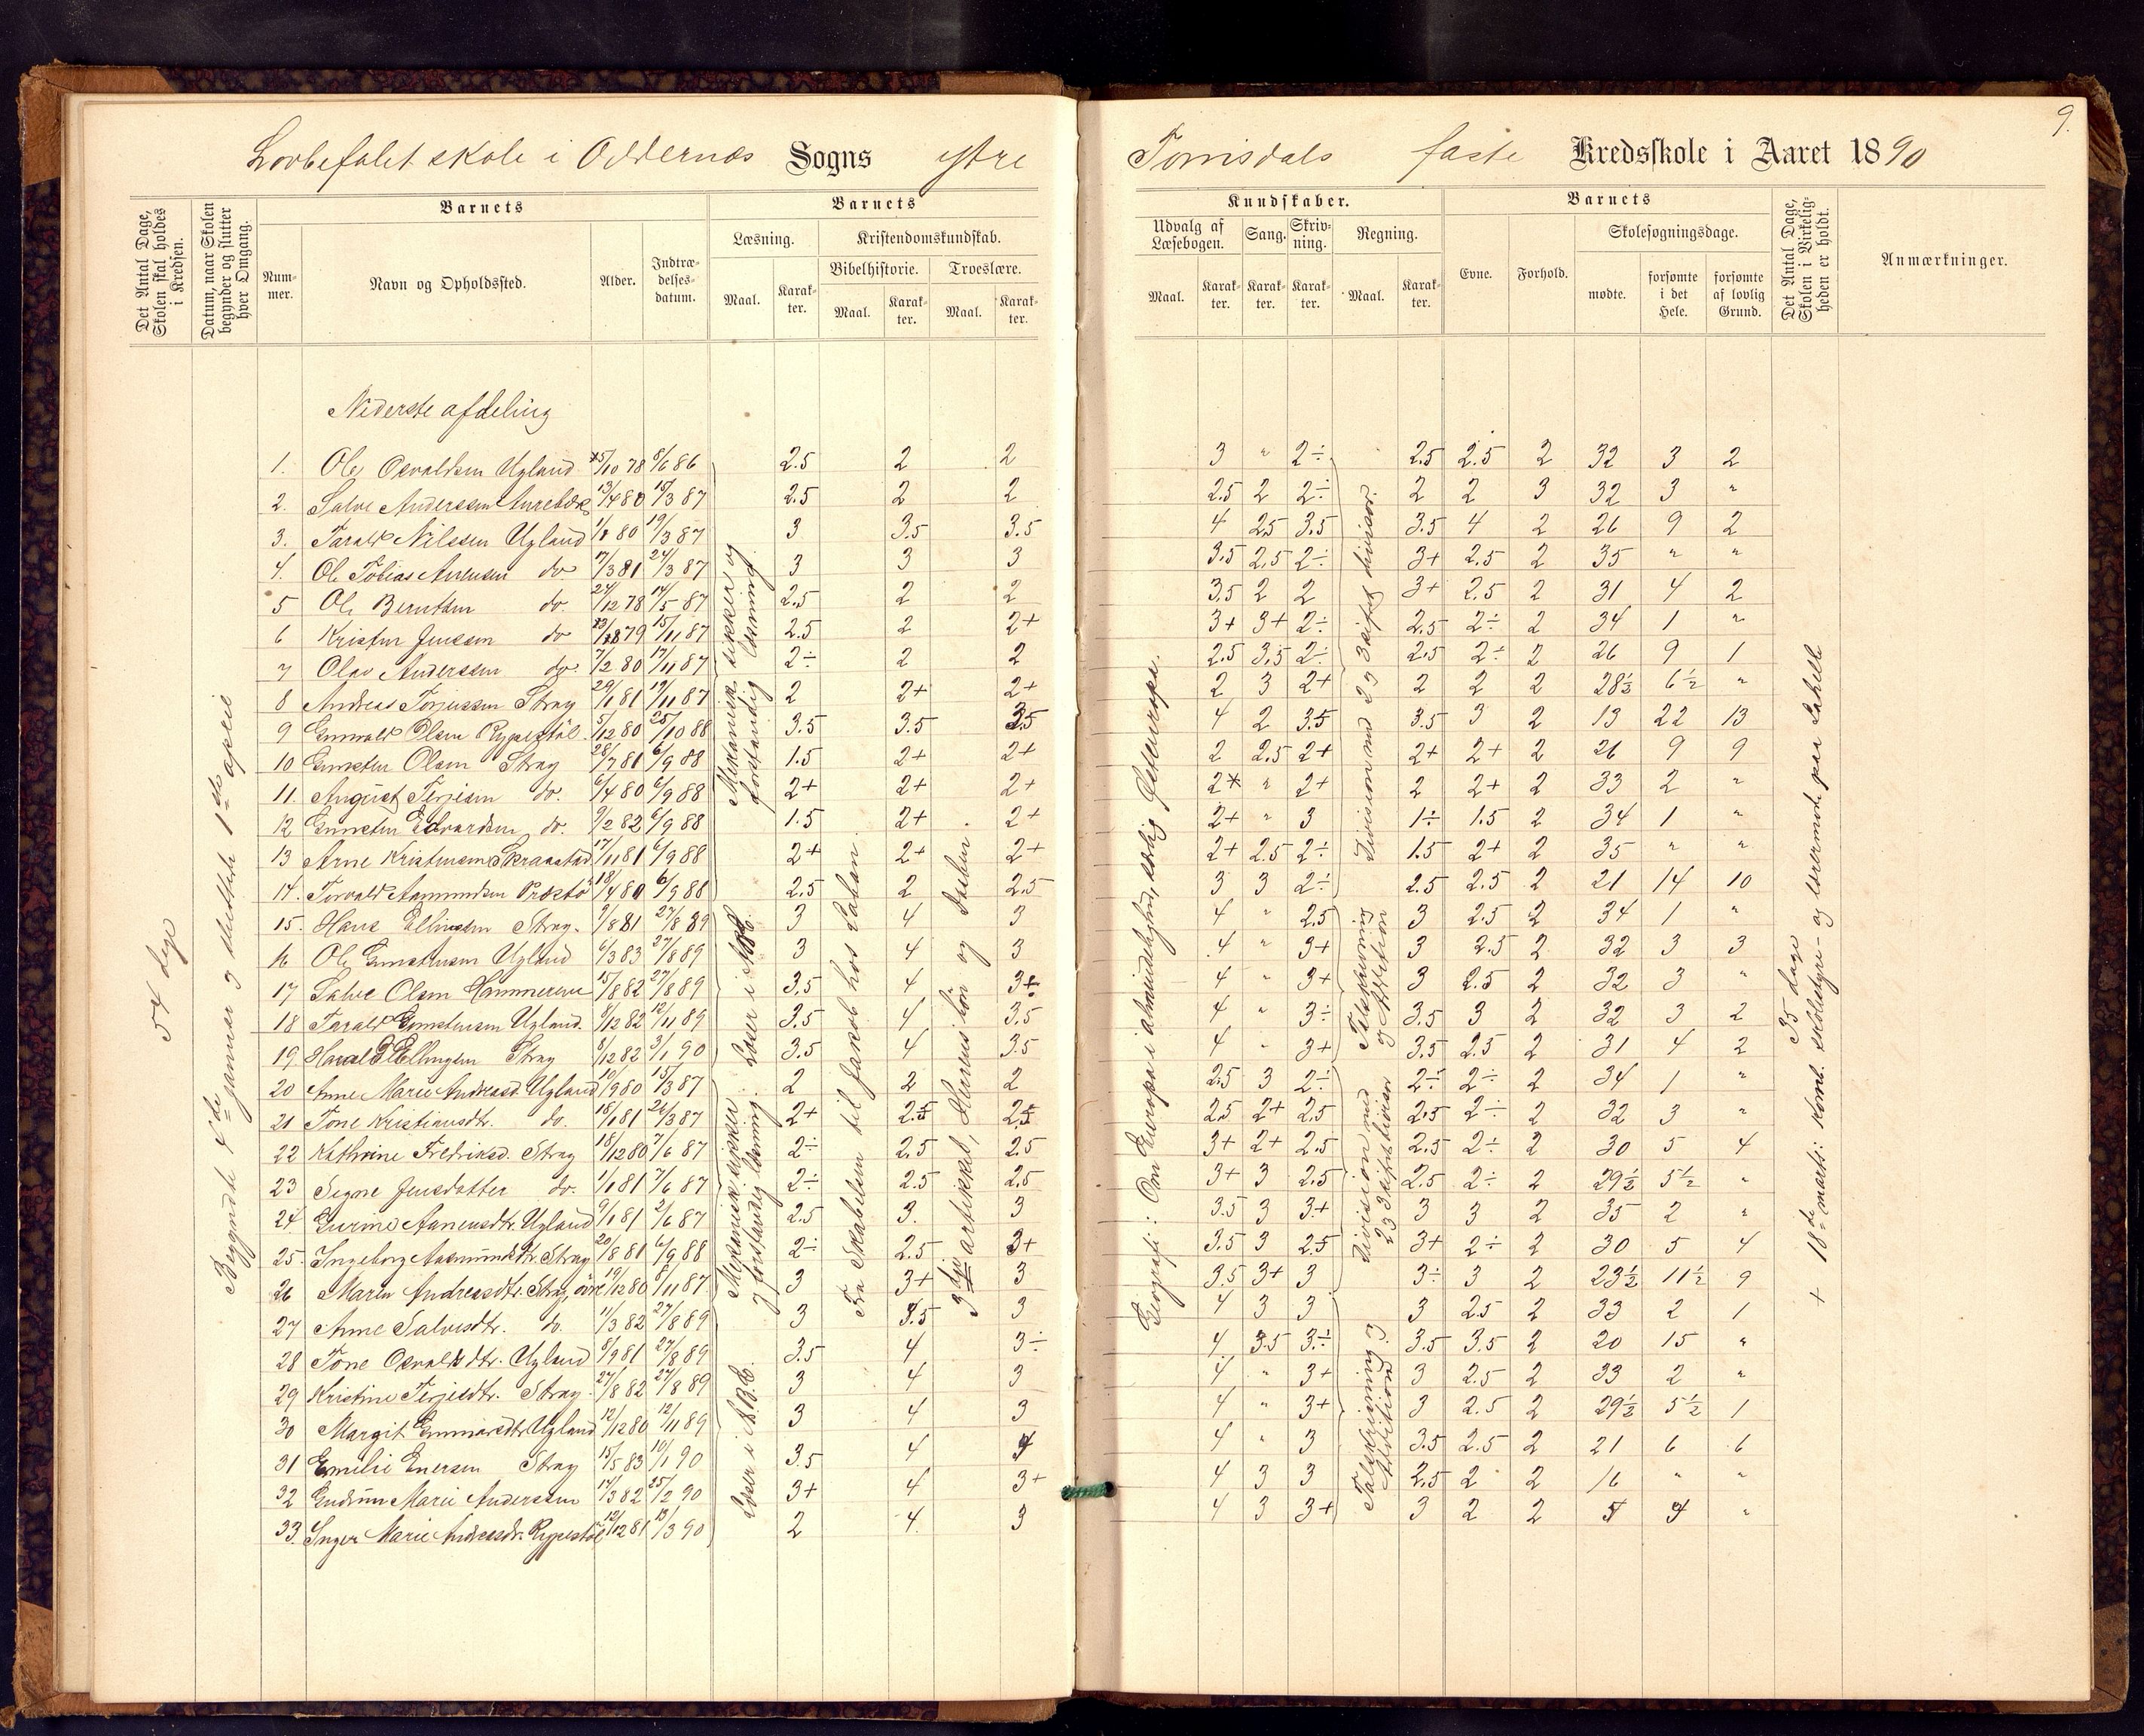 9.
Lovbefalet skole i Oddernæs Sogns ystre Torrisdals faste Kredsskole i Aaret 1890
Det Antal Dage, Skolen skal holdes i Kredsen.
Datum, naar Skolen begynder og slutter hver Omgang.
Barnets
Num-mer.
Navn og Opholdssted.
Alder.
Indtræ-delses-datum.
Barnets
Læsning.
Maal.
Karak-ter.
Kristendomskundskab.
Bibelhistorie.
Maal.
Karak-ter.
Troeslære.
Maal.
Karak-ter.
Kundskaber.
Udvalg af Læsebogen.
Maal.
Karak-ter.
Sang.
Karak-ter.
Skriv-ning.
Karak-ter.
Regning.
Maal.
Karak-ter.
Barnets
Evne.
Forhold.
Skolesøgningsdage.
mødte.
forsømte i det Hele.
forsømte af lovlig Grund.
Det Antal Dage, Skolen i Virkelig-heden er holdt.
Anmærkninger.
54 dage
Begyndte 4de januar og sluttede 1ste april
Nederste afdeling
1. Ole Osvaldsen Ugland 5/10 78 5/6 86 2.5 2 2 3 " 2÷ 2.5 2.5 2 32 3 2
2. Salve Anderssen 13/4 80 15/3 87 2.5 2 2 2.5 2 2÷ 2 2 3 32 3 "
3. Tarald Nilssen Ugland 1/8 80 19/3 87 3 3.5 3.5 4 2.5 3.5 3.5 4 2 26 9 2
4. Ole Tobias Anensen do 17/3 81 24/3 87 3 3 3 3.5 2.5 2÷ 3+ 2.5 2 35 " "
5 Ole Berntsen do. 24/12 78 14/5 87 2.5 2 2 3.5 2 2 3+ 2.5 2 31 4 2
6 Kristen Jenssen do 79 15/11 87 2.5 2 2+ 3+ 3+ 2÷ 2.5 2÷ 2 34 1 "
7 Olav Anderssen do. 7/2 80 17/11 87 2÷ 2 2 2.5 3.5 2÷ 2.5 2÷ 2 26 9 1
8 Andreas Torjussen Stray 29/1 81 19/11 87 2 2+ 2+ 2 3 2+ 2 2 2 28½ 6½ "
9 Gunvald Olsen Rypestøl 5/12 80 25/10 88 3.5 3.5 3.5 4 2 3.5 3.5 3 2 13 22 13
10 Gunsten Olsen Stray 28/7 81 6/9 88 1.5 2+ 2+ 2 2.5 2+ 2+ 2+ 2 26 9 9
11. August Terjesen do. 6/4 80 6/9 88 2+ 2+ 2+ 2* " 2+ 2 2+ 2 33 2 "
12 Gunsten Edvardsen do. 9/2 82 6/9 88 1.5 2+ 2+ 2+ " 3 1÷ 1.5 2 34 1 "
13 Arne Kristensen 17/11 81 6/9 88 2+ 2+ 2+ 2+ 2.5 2÷ 1.5 2+ 2 35 " "
14. Torvald Aamundsen Præstø 18/4 80 6/9 88 2.5 2 2.5 3 3 2÷ 2.5 2.5 2 21 14 10
15. Hans Ellingsen Stray. 9/8 81 27/8 89 3 4 3 4 " 2.5 3 2.5 2 34 1 "
16 Ole Gunstensen Ugland 6/3 83 27/8 89 3 4 3 4 " 3+ 3 2.5 2 32 3 3
17 Salve Olsen 15/8 82 27/8 89 3.5 4 3+ 4 " 3+ 3 2.5 2 32 3 "
18 Tarald Gunstensen Ugland. 9/12 82 12/11 89 3.5 4 3.5 4 " 3÷ 3.5 3 2 32 3 2
19. Harald Ellingsen Stray 8/12 82 3/1 90 3.5 4 3.5 4 " 3+ 3.5 2.5 2 31 4 2
20 Anne Marie Andreasd. Ugland 10/9 80 15/3 87 2 2 2 2.5 3 2÷ 2÷ 2÷ 2 34 1 "
21 Tone Kristiansdtr. do. 18/1 81 26/3 87 2+ 2.5 2.5 2.5 2+ 2.5 2.5 2÷ 2 32 3 "
22 Kathrine Fredriksd. Stray 18/12 80 7/6 87 2÷ 2.5 2.5 3+ 2+ 2.5 2.5 2÷ 2 30 5 4
23 Signe Jensdatter do. 1/1 81 7/6 87 2÷ 2.5 2.5 3+ 3 2.5 2.5 2÷ 2 29½ 5½ "
24 Gurine Aanensdtr. Ugland 9/1 81 2/6 87 2.5 3. 3 3.5 3 3+ 3 3 2 35 2 "
25. Ingeborg Aasmundsdtr. Stray 20/8 81 6/9 88 2÷ 2.5 3+ 3.5 3 2.5 3+ 2÷ 2 30 5 4
26 Maren Andreasdtr. Stray, øvre 19/12 80 8/11 87 3 3+ 3 3.5 3+ 3 3÷ 3 2 23½ 11½ 9
27 Anne Salvesdtr. do. 11/3 82 27/8 89 3 3.5 3 4 3 3 3 2.5 2 33 2 1
28 Tone Osvaldsdtr. Ugland 8/9 81 27/8 89 3.5 4 3÷ 4. 3.5 3÷ 3.5 3.5 2 20 15 "
29 Kristine Terjesdtr. Stray 27/8 82 27/8 89 3 4 3 4 " 3+ 3 2.5 2 33 2 "
30 Margit Gunnarsdtr. Ugland 12/12 80 12/11 89 3 4 3 4 " 3+ 3 2.5 2 29½ 5½ 1
31 Emilie Enersen Stray 15/5 83 10/1 90 3.5 4 4 4 " 3 3.5 2.5 2 21 6 6
32 Gudrun Marie Anderssen 17/3 82 25/2 90 3+ 4 3+ 4 3 3 2.5 2 2 16 " "
33. Inger Marie Andreasdr. Rypestøl 12/12 81 13/3 90 2 4. 3 4 3 3+ 3 2 2 5 4 "
Mekanisk sikker og forstandig læsning
Læser i
Mekanisk sikker og forstandig læsning.
Læser i A.B.C.
Fra Skabelsen til Jakob hos Laban.
3dje artikkel, Herrens bøn og Daaben.
Geografi: Om Europa i almindelighed, særlig Østeuropa.
Division med 2 a 3 sifret divisor.
Talskrivning og Addition
Division med 2 a 3 sifret divisor
Talskrivning og Addition
35 dage
+ 18de marts: komb. skolestyre- og lærermøde paa Lahelle